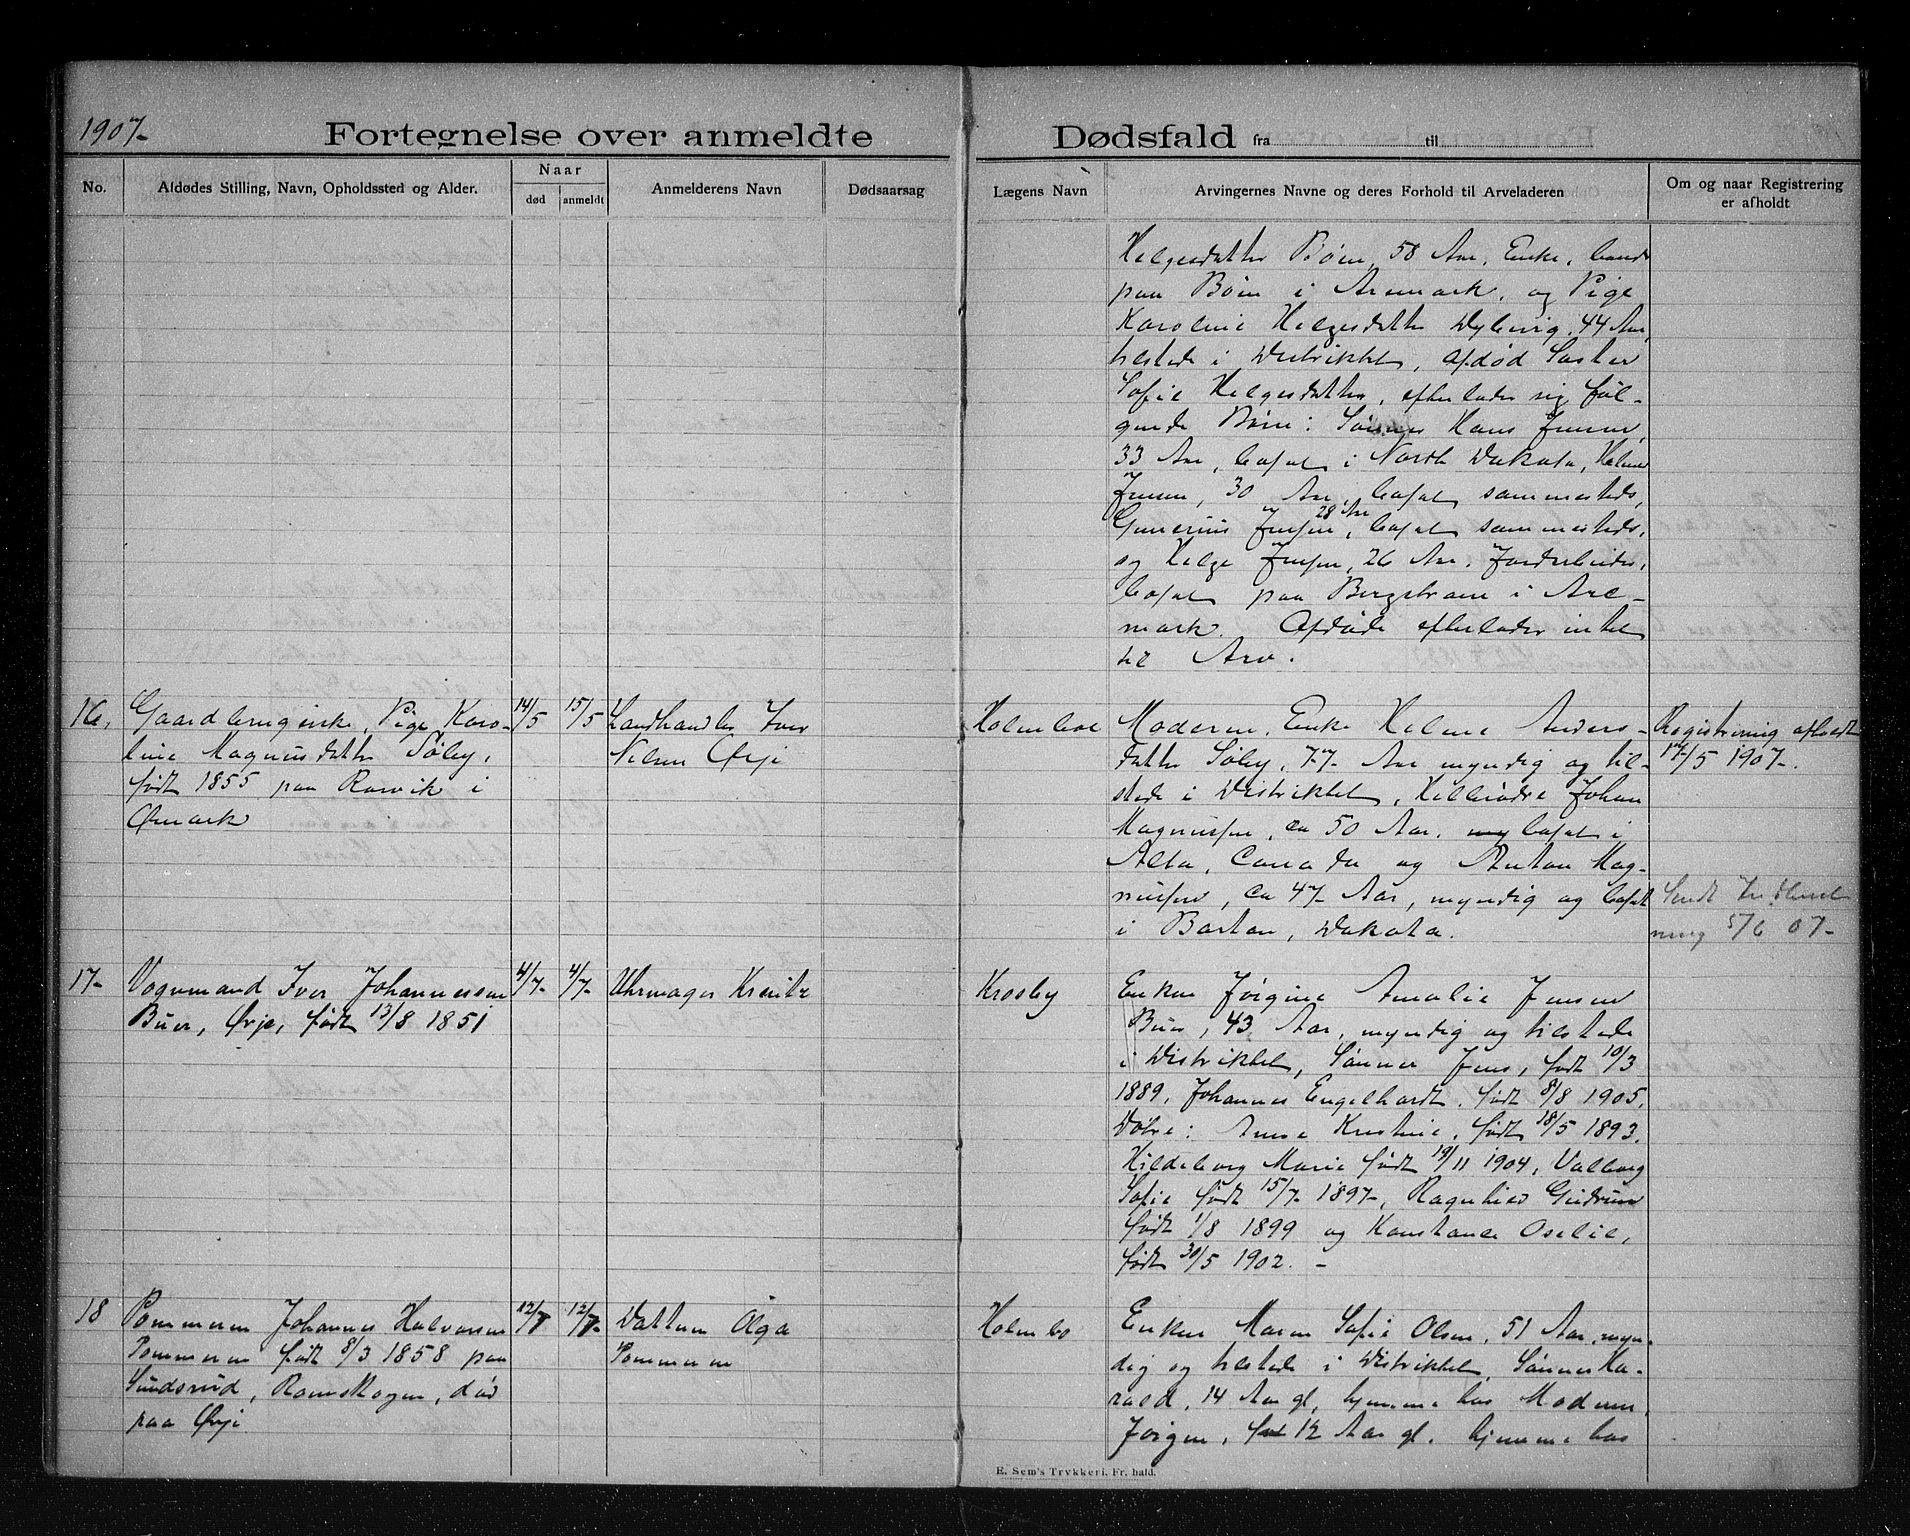 1907-
Fortegnelse over anmeldte Dødsfald fra til
No.
Afdødes Stilling, Navn, Opholdssted og Alder.
Naar
død
anmeldt
Anmelderens Navn
Dødsaarsag
Lægens Navn
Arvingernes Navne og deres Forhold til Arveladeren
Om og naar Registrering
er afholdt
Helgesdatter Böen 58 Aar, Enke,
paa Böen i Aremark, og Pige
Karoline Helgesdatter 44 Aar
tilstede i Distriktet, afdød Søster
Sofie Helgesdatter, efterlader sig føl-
gende Børn: Sønner Hans Jensen,
33 Aar, bosat i North Dakota,
Jensen, 30 Aar, bosat sammesteds,
28 Aar
Jensen, bosat sammesteds,
og Helge Jensen, 26 Aar, Jordarbeider,
bosat paa i Are-
mark. Afdøde efterlader intet
til Arv.
16,
Gaardbrugerske, Pige Karo-
line Magnusdatter Söby,
født 1855 paa Rørvik i
Ømark
14/5
15/5
Landhandler Iver
Nilsen Ørje
Holmboe
Moderen, Enke Helene Anders-
datter Söby, 77 Aar myndig og til-
stede i Distriktet, Helbrødre Johan
Magnussen, ca 50 Aar, bosat i
Alta, Canada og Anton Mag-
nussen, ca 47 Aar, myndig og bosat
i Barton, Dakota.
Registrering afholdt
17/5 1907.
Sendt
5/6 07-
17-
Vognmand Iver Johannessen
Buer, Ørje, født 13/8 1851
4/7-
4/7-
Uhrmager
Krosby
Enken Jörgine Amalie Jensen
Buer, 43 Aar, myndig og tilstede
i Distriktet, Sönner Jens, født 10/3
1889, Johannes Engelhardt, født 8/8 1905,
Døtre: Anna Kristine, født 18/5 1893,
Hildeborg Marie født 19/11 1904, Valborg
Sofie født 15/7- 1897-, Ragnhild Gudrun
født 1/8 1899 og Konstance Oselie,
født 30/5 1902. -
18
Pommeren Johannes Halvorsen
Pommeren født 8/3 1858 paa
Sundsrud, Romskogen, død
paa Ørje
12/7
12/7-
Datteren Olga
Pommeren
Holmbo
Enken Maren Sofie Olsen, 51 Aar, myn-
dig og tilstede i Distriktet, Sønner Ha-
rald, 14 Aar gl, hjemme hos Moderen,
Jörgen, 12 Aar gl. hjemme hos
E. Sem's Trykkeri, Fr. hald.